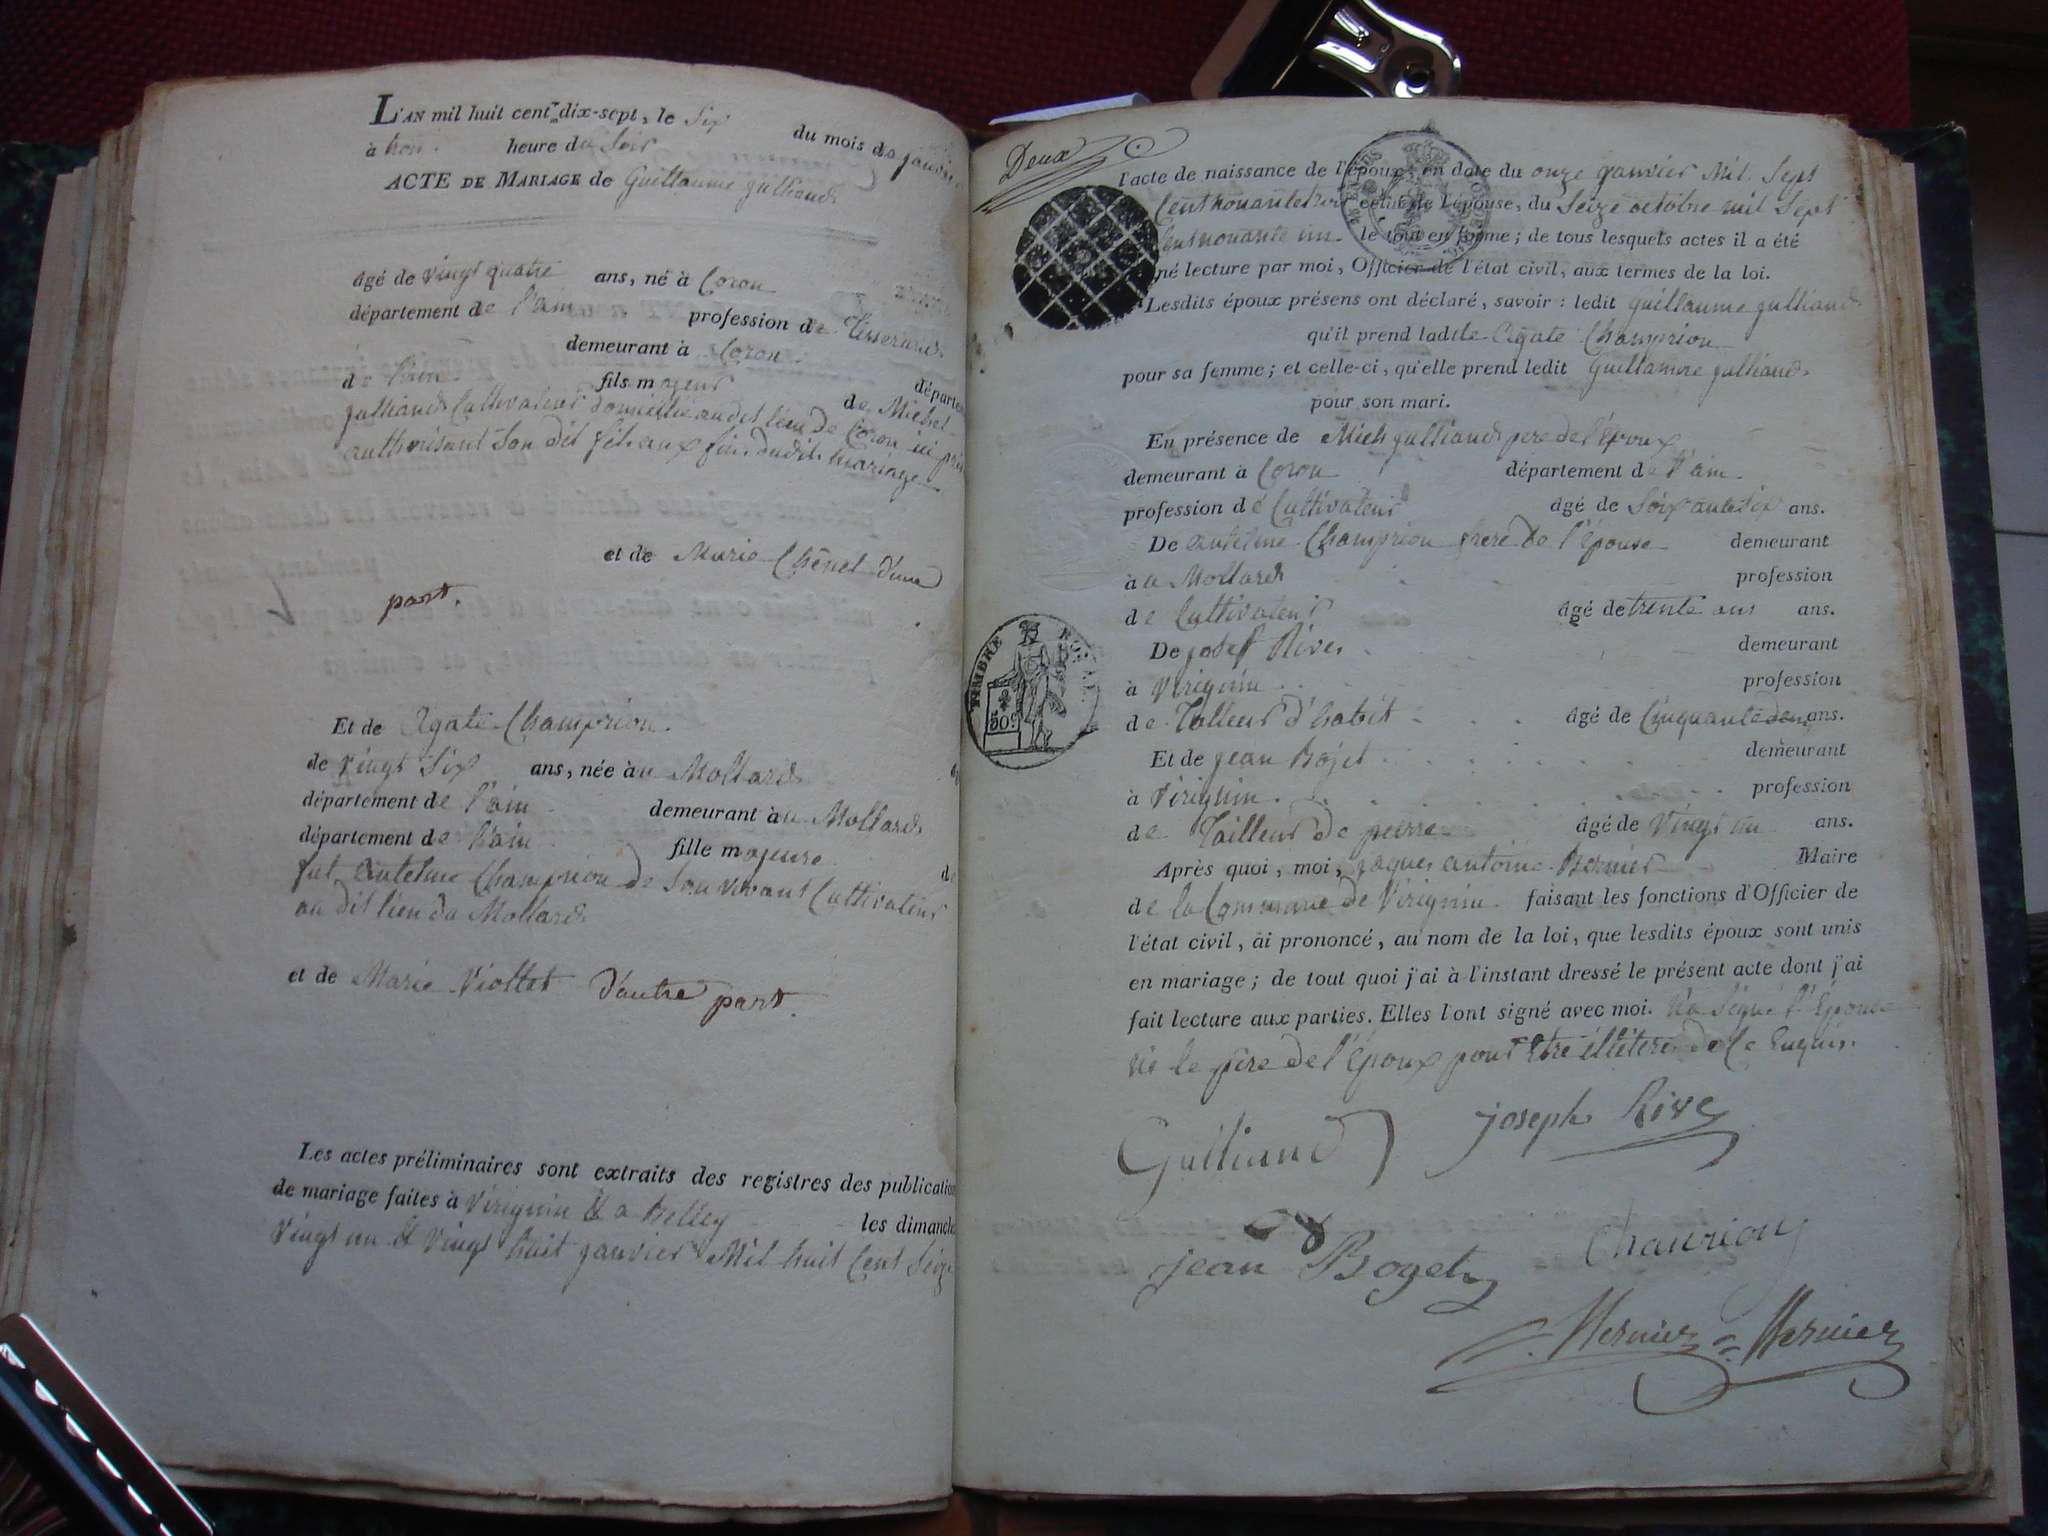 L'AN mil huit cent dix-sept, le Six du mois de janvier
à troi heure du Soir
ACTE DE MARIAGE de Guillaume gulliand
âgé de vingt quatre ans, né à Coron
département de l'ain profession de Tisserand
demeurant à Coron départem
de l'ain fils majeur de Michel
gulliand Cultivateur domicilié au dit lieu de Coron ici
authorisant Son dit fils aux fin dudit mariage
et de Marie Chênel d'une
part.
Et de Agate Champrion
de vingt Six ans, née à u Mollard
département de l'ain demeurant à u Mollard
département de l'ain fille majeure de
fut antelme Champrion de Son vivant Cultivateur
au dit lieu du Mollard
et de Marie Viollet d'autre part.
Les actes préliminaires sont extraits des registres des publication
de mariage faites à Virignin & a Belley les dimanche
vingt un & vingt huit janvier Mil huit Cent Seize
Deux
l'acte de naissance de l'époux, en date du onze janvier Mil Sept
Cent nonante trois celui de l'épouse, du Seize octobre mil Sept
Cent nonante un le tout en forme; de tous lesquels actes il a été
né lecture par moi, Officier de l'état civil, aux termes de la loi.
Lesdits époux présens ont déclaré, savoir : ledit guillaume gulliand
qu'il prend ladite Agate Champrion
pour sa femme; et celle-ci, qu'elle prend ledit guillaume gulliand
pour son mari.
En présence de Mich gulliand pere de l'Époux
demeurant à Coron département de l'ain
profession de Cultivateur âgé de Soixante Six ans.
De antelme Champrion frere de l'épouse demeurant
à u Mollard profession
de Cultivateur âgé de trente ans ans.
De josef Rives demeurant
à Virignin profession
de Talleur d'habit âgé de Cinquante deux ans.
Et de jean Bojet demeurant
à Virignin profession
de Tailleur de pierre âgé de Vingt un ans.
Après quoi, moi, jaques antoine Bernier Maire
de la Commune de Virignin faisant les fonctions d'Officier de
l'état civil, ai prononcé, au nom de la loi, que lesdits époux sont unis
en mariage; de tout quoi j'ai à l'instant dressé le présent acte dont j'ai
fait lecture aux parties. Elles l'ont signé avec moi. Na Signé l'Épouse
ni le père de l'Époux pour Etre illétere de Ce Enquis.
Gulliand joseph Rive
TIMBRE ROYAL
50
jean Boget Chanrion